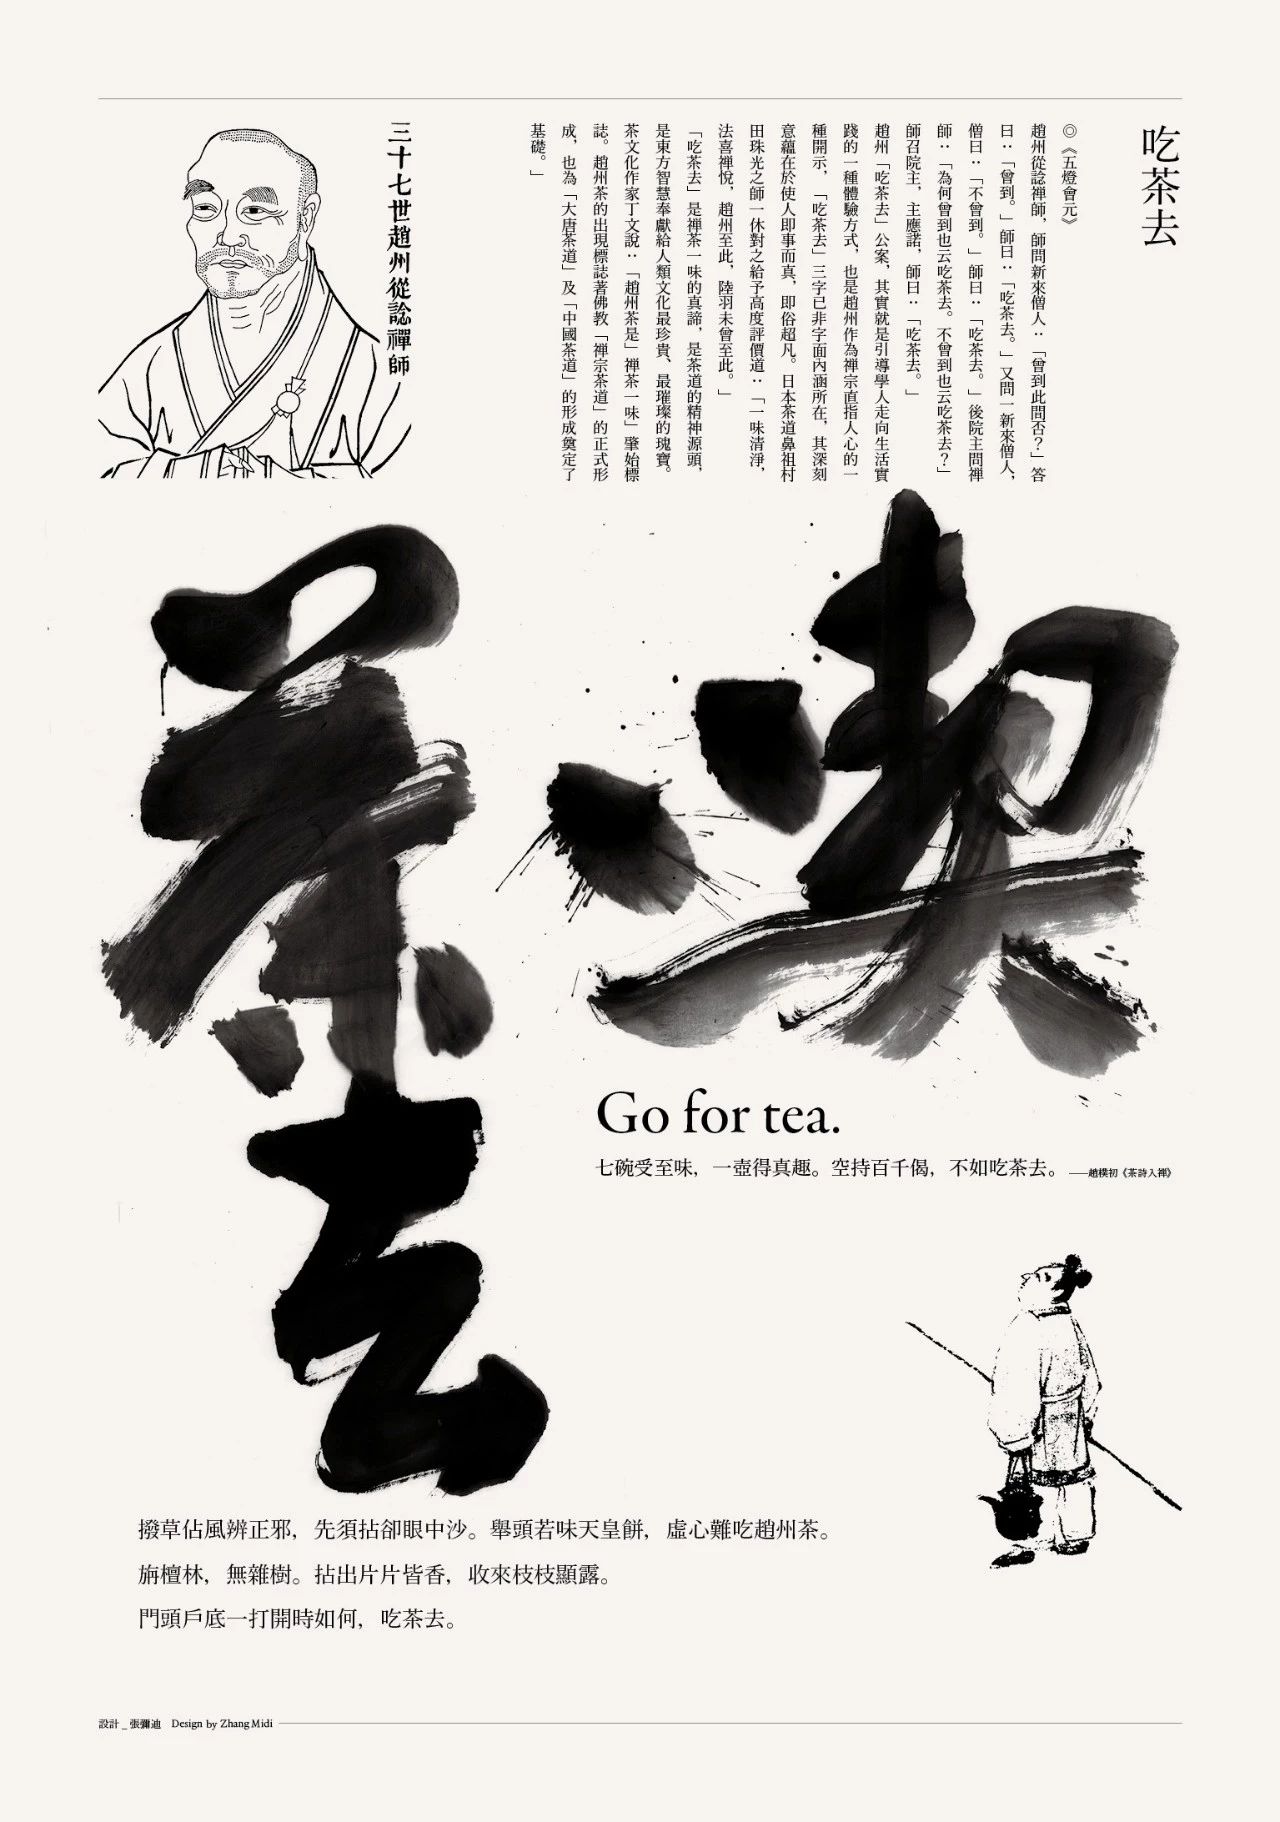 吃茶去
◎《五燈會元》
趙州從諗禪師，師問新來僧人：「曾到此間否？」答
曰：「曾到。」師曰：「吃茶去。」又問一新來僧人，
僧曰：「不曾到。」師曰：「吃茶去。」後院主問禪
師：「為何曾到也云吃茶去。不曾到也云吃茶去？」
師召院主，主應諾，師曰：「吃茶去。」
趙州「吃茶去」公案，其實就是引導學人走向生活實
踐的一種體驗方式，也是趙州作為禪宗直指人心的一
種開示，「吃茶去」三字已非字面內涵所在，其深刻
意蘊在於使人即事而真，即俗超凡。日本茶道鼻祖村
田珠光之師一休對之給予高度評價道：「一味清淨，
法喜禪悅，趙州至此，陸羽未曾至此。」
「吃茶去」是禪茶一味的真諦，是茶道的精神源頭，
是東方智慧奉獻給人類文化最珍貴、最璀璨的瑰寶。
茶文化作家丁文說：「趙州茶是」禪茶一味」肇始標
誌。趙州茶的出現標誌著佛教「禪宗茶道」的正式形
成，也為「大唐茶道」及「中國茶道」的形成奠定了
基礎。」
三十七世趙州從諗禪師
喫
茶
去
Go for tea.
七碗受至味，一壺得真趣。空持百千偈，不如吃茶去。——趙樸初《茶詩入禪》
撥草佔風辨正邪，先須拈卻眼中沙。舉頭若味天皇餅，虛心難吃趙州茶。
旃檀林，無雜樹。拈出片片皆香，收來枝枝顯露。
門頭戶底一打開時如何，吃茶去。
設計_張彌迪 Design by Zhang Midi